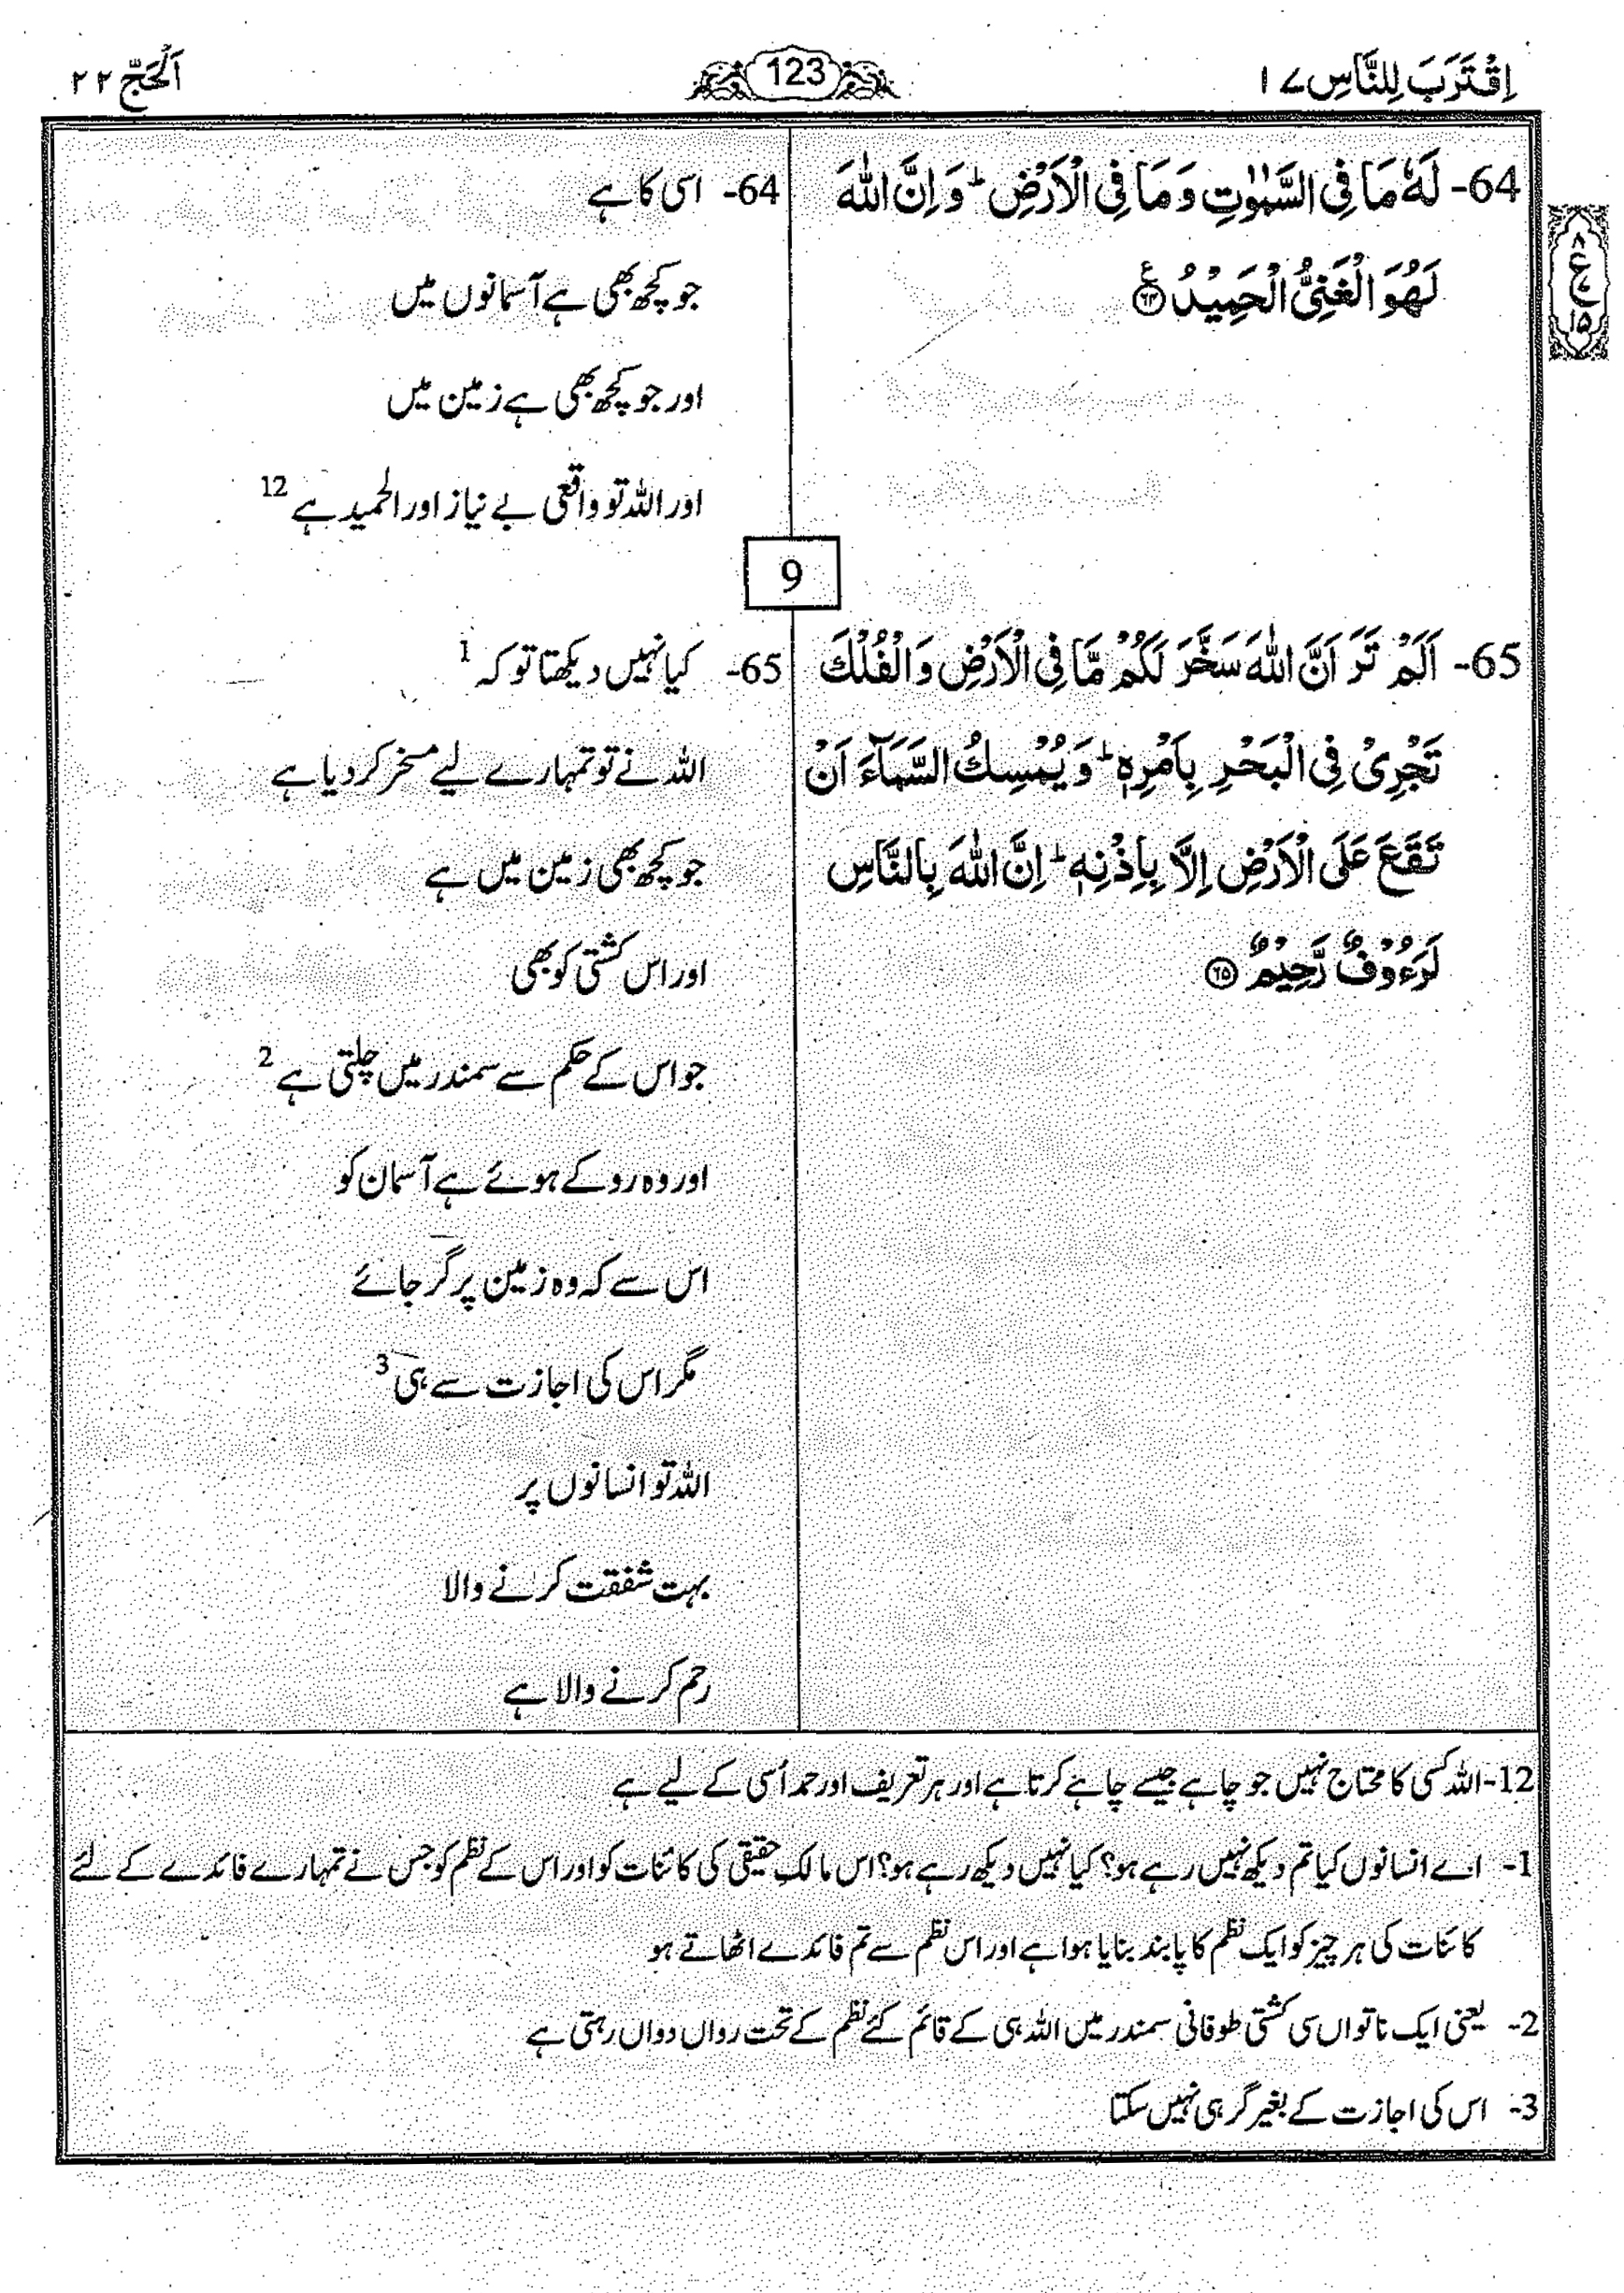 اِقْتَرَبَ لِلنَّاسِ ۱۷
123
اَلْحَجّ ۲۲
۸
ع
۱۵
64- لَهٗ مَا فِی السَّمٰوٰتِ وَ مَا فِی الْاَرْضِ ؕ وَ اِنَّ اللّٰهَ
لَهُوَ الْغَنِیُّ الْحَمِیْدُ ﴿۶۴﴾ ع
64- اسی کا ہے
جو کچھ بھی ہے آسمانوں میں
اور جو کچھ بھی ہے زمین میں
اور اللہ تو واقعی بے نیاز اور الحمید ہے 12
9
65- اَلَمْ تَرَ اَنَّ اللّٰهَ سَخَّرَ لَكُمْ مَّا فِی الْاَرْضِ وَ الْفُلْكَ
تَجْرِیْ فِی الْبَحْرِ بِاَمْرِهٖ ؕ وَ یُمْسِكُ السَّمَآءَ اَنْ
تَقَعَ عَلَی الْاَرْضِ اِلَّا بِاِذْنِهٖ ؕ اِنَّ اللّٰهَ بِالنَّاسِ
لَرَءُوْفٌ رَّحِیْمٌ ﴿۶۵﴾
65- کیا نہیں دیکھتا تو کہ 1
اللہ نے تو تمہارے لیے مسخر کر دیا ہے
جو کچھ بھی زمین میں ہے
اور اس کشتی کو بھی
جو اس کے حکم سے سمندر میں چلتی ہے 2
اور وہ روکے ہوئے ہے آسمان کو
اس سے کہ وہ زمین پر گر جائے
مگر اس کی اجازت سے ہی 3
اللہ تو انسانوں پر
بہت شفقت کرنے والا
رحم کرنے والا ہے
12- اللہ کسی کا محتاج نہیں جو چاہے جیسے چاہئے کرتا ہے اور ہر تعریف اور حمد اُسی کے لیے ہے
1- اے انسانوں کیا تم دیکھ نہیں رہے ہو؟ کیا نہیں دیکھ رہے ہو؟ اس مالکِ حقیقی کی کائنات کو اور اس کے نظم کو جس نے تمہارے فائدے کے لئے
کائنات کی ہر چیز کو ایک نظم کا پابند بنایا ہوا ہے اور اس نظم سے تم فائدے اٹھاتے ہو
2- یعنی ایک ناتواں سی کشتی طوفانی سمندر میں اللہ ہی کے قائم کئے نظم کے تحت رواں دواں رہتی ہے
3- اس کی اجازت کے بغیر گر ہی نہیں سکتا